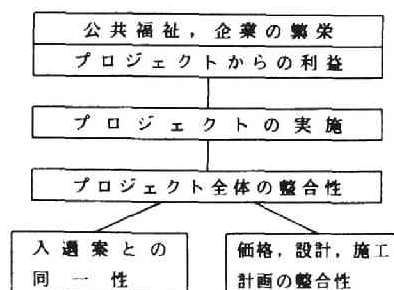 公共福祉，企業の繁栄
プロジェクトからの利益
プロジェクトの実施
プロジェクト全体の整合性
入選案との
同一性
価格，設計，施工
計画の整合性